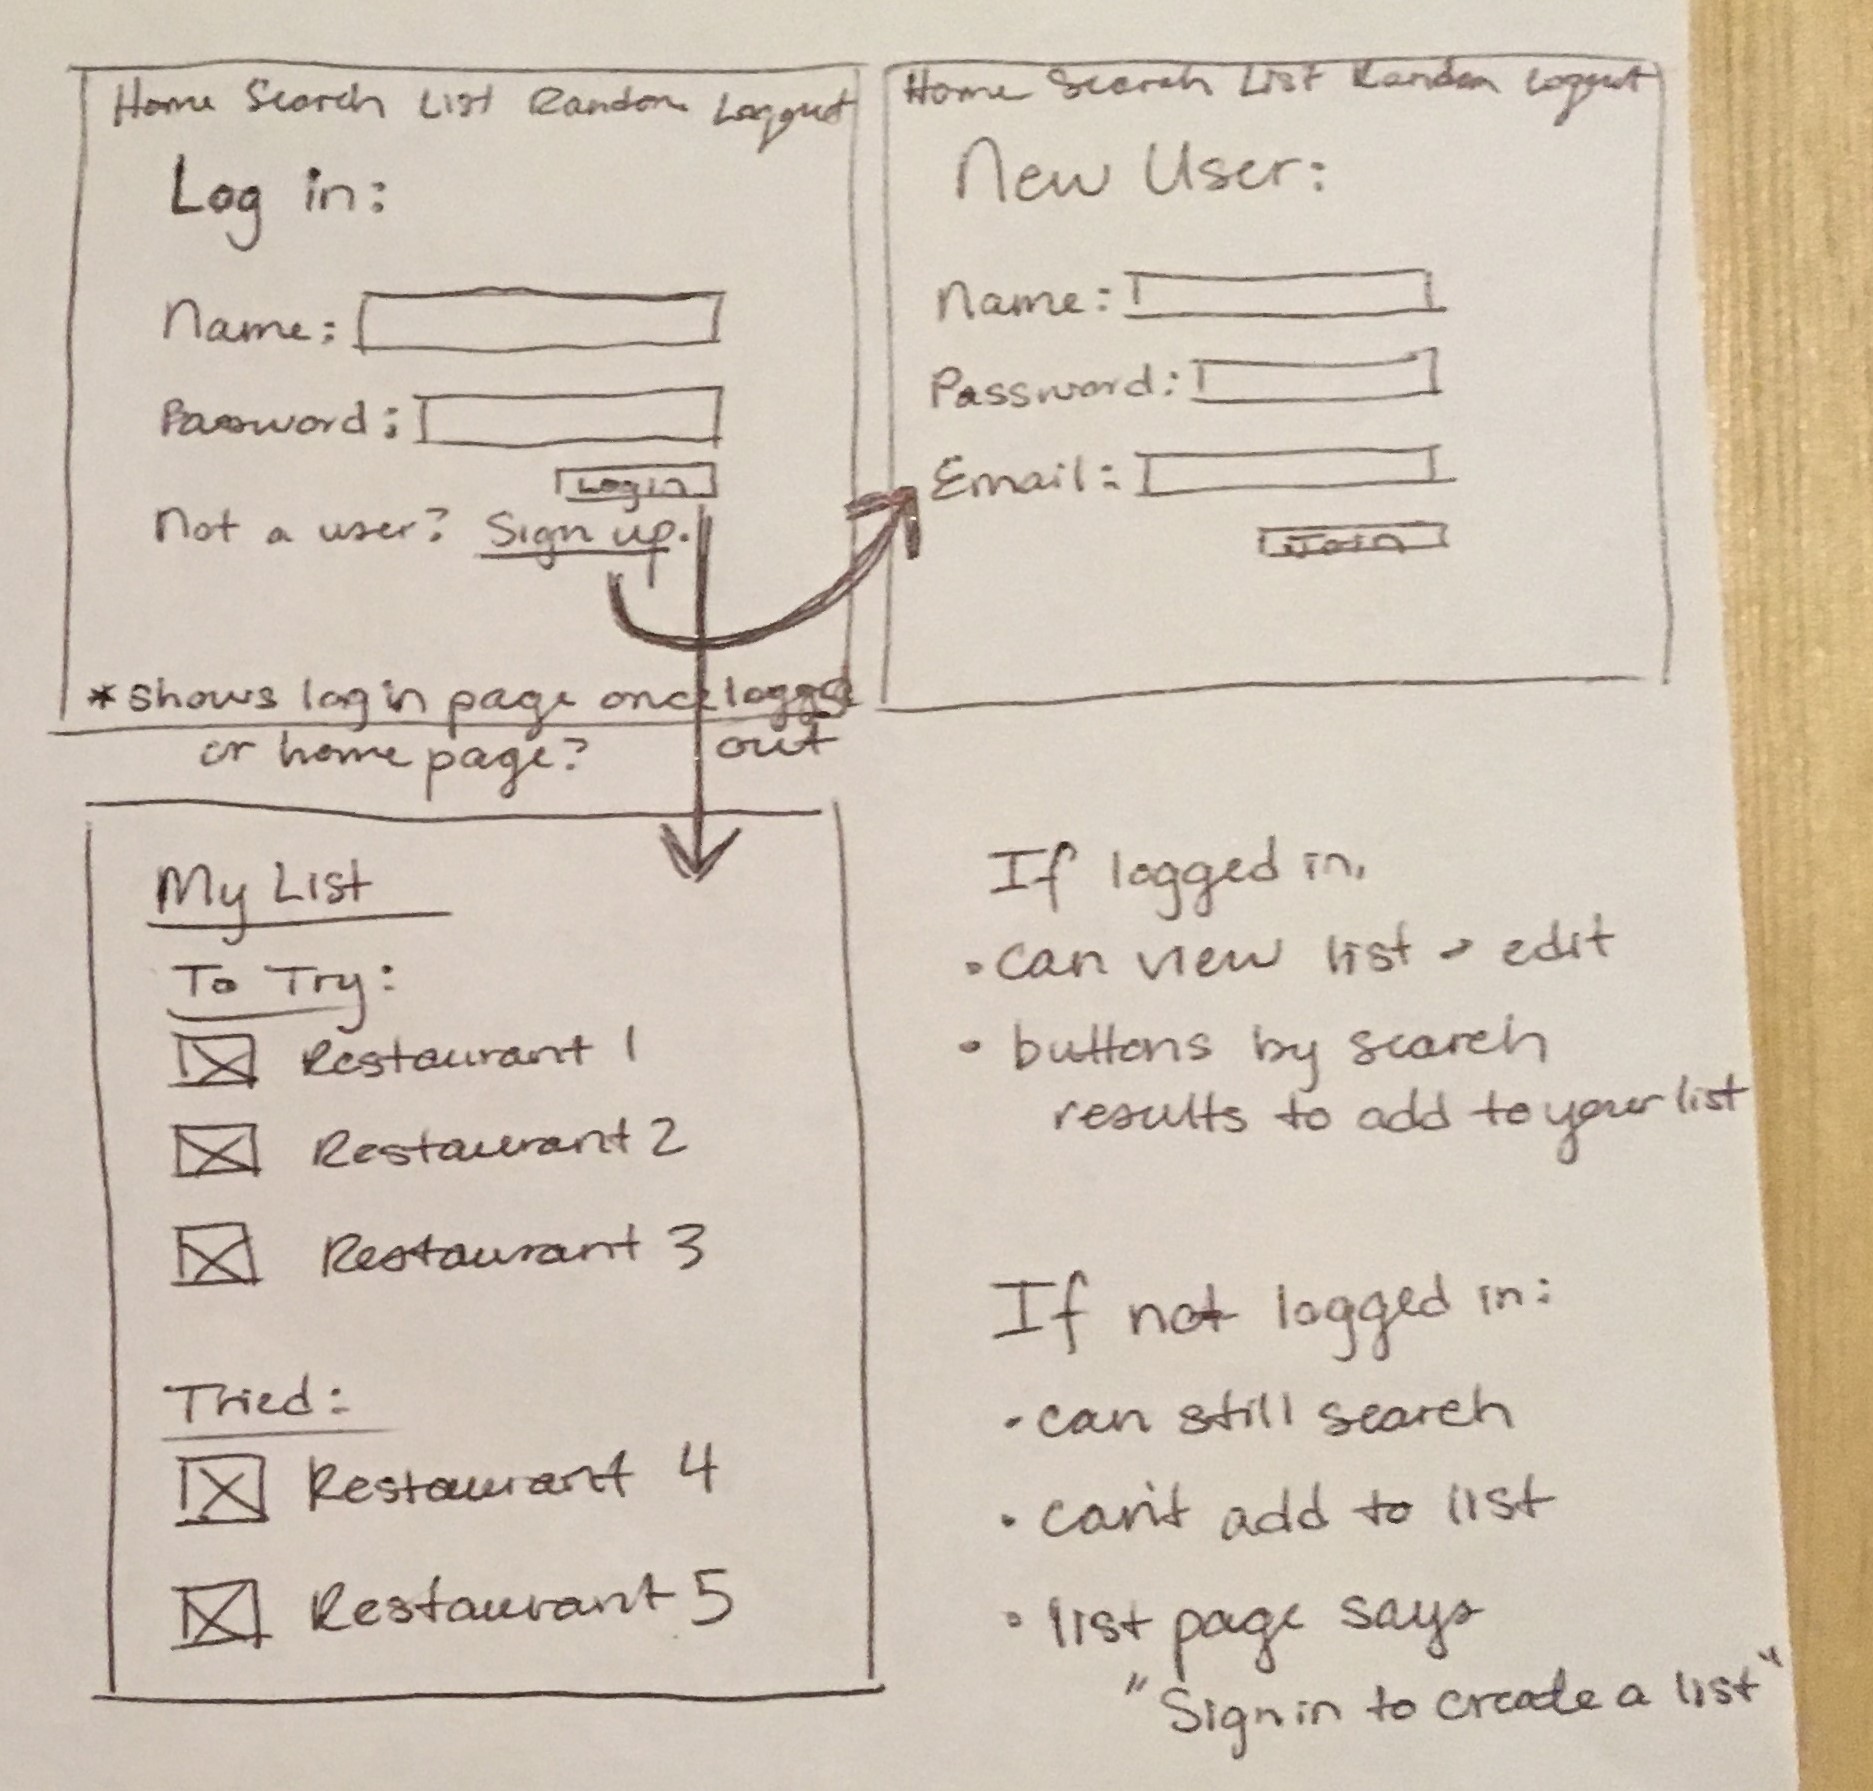 Home Search List Random Loggout
Log in:
Name:
Password:
Login
Not a user? Sign up.
*shows login page once logged
or home page? out
Home Search List Random Loggout
New User:
Name:
Password:
Email:
Join
My List
To Try:
Restaurant 1
Restaurant 2
Restaurant 3
Tried:
Restaurant 4
Restaurant 5
If logged in,
• can view list → edit
• buttons by search
results to add to your list
If not logged in:
• can still search
• can't add to list
• list page says
"Sign in to create a list"